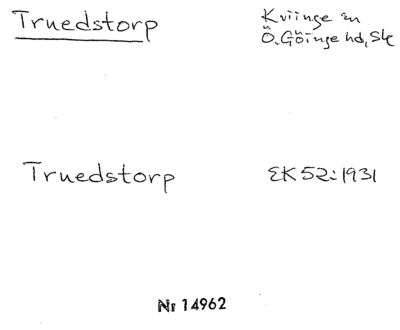 Truedstorp
Kviinge sn
Ö. Göinge hd, Sk
Truedstorp
EK 52:1931
Nr 14962